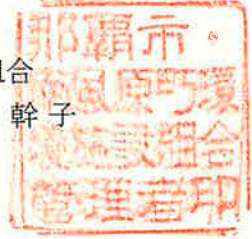 組合
幹子
那覇市・
南風原町環
境施設組合
管理者印